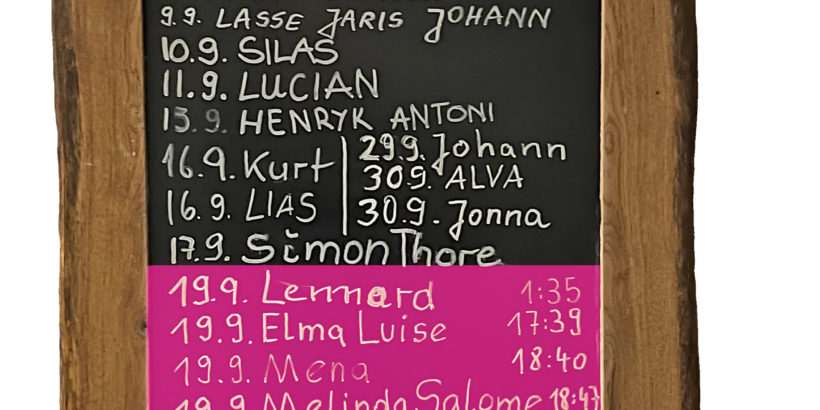 9.9. LASSE JARIS JOHANN
10.9. SILAS
11.9. LUCIAN
15.9. HENRYK ANTONI
16.9. Kurt
16.9. LIAS
29.9. Johann
30.9. ALVA
30.9. Jonna
17.9. Simon Thore
19.9. Lennard 1:35
19.9. Elma Luise 17:39
19.9. Mena 18:40
19.9. Melinda Salome 18:47